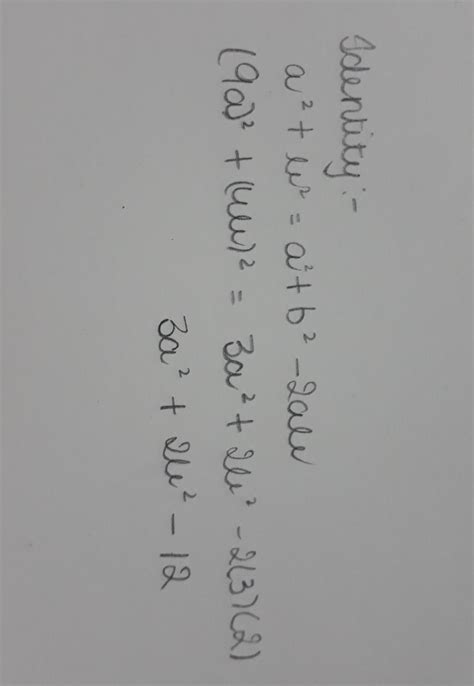 Identity :-
a² + b² = a² + b² - 2ab
(9a)² + (4b)² = 3a² + 2b² - 2(3)(2)
3a² + 2b² - 12